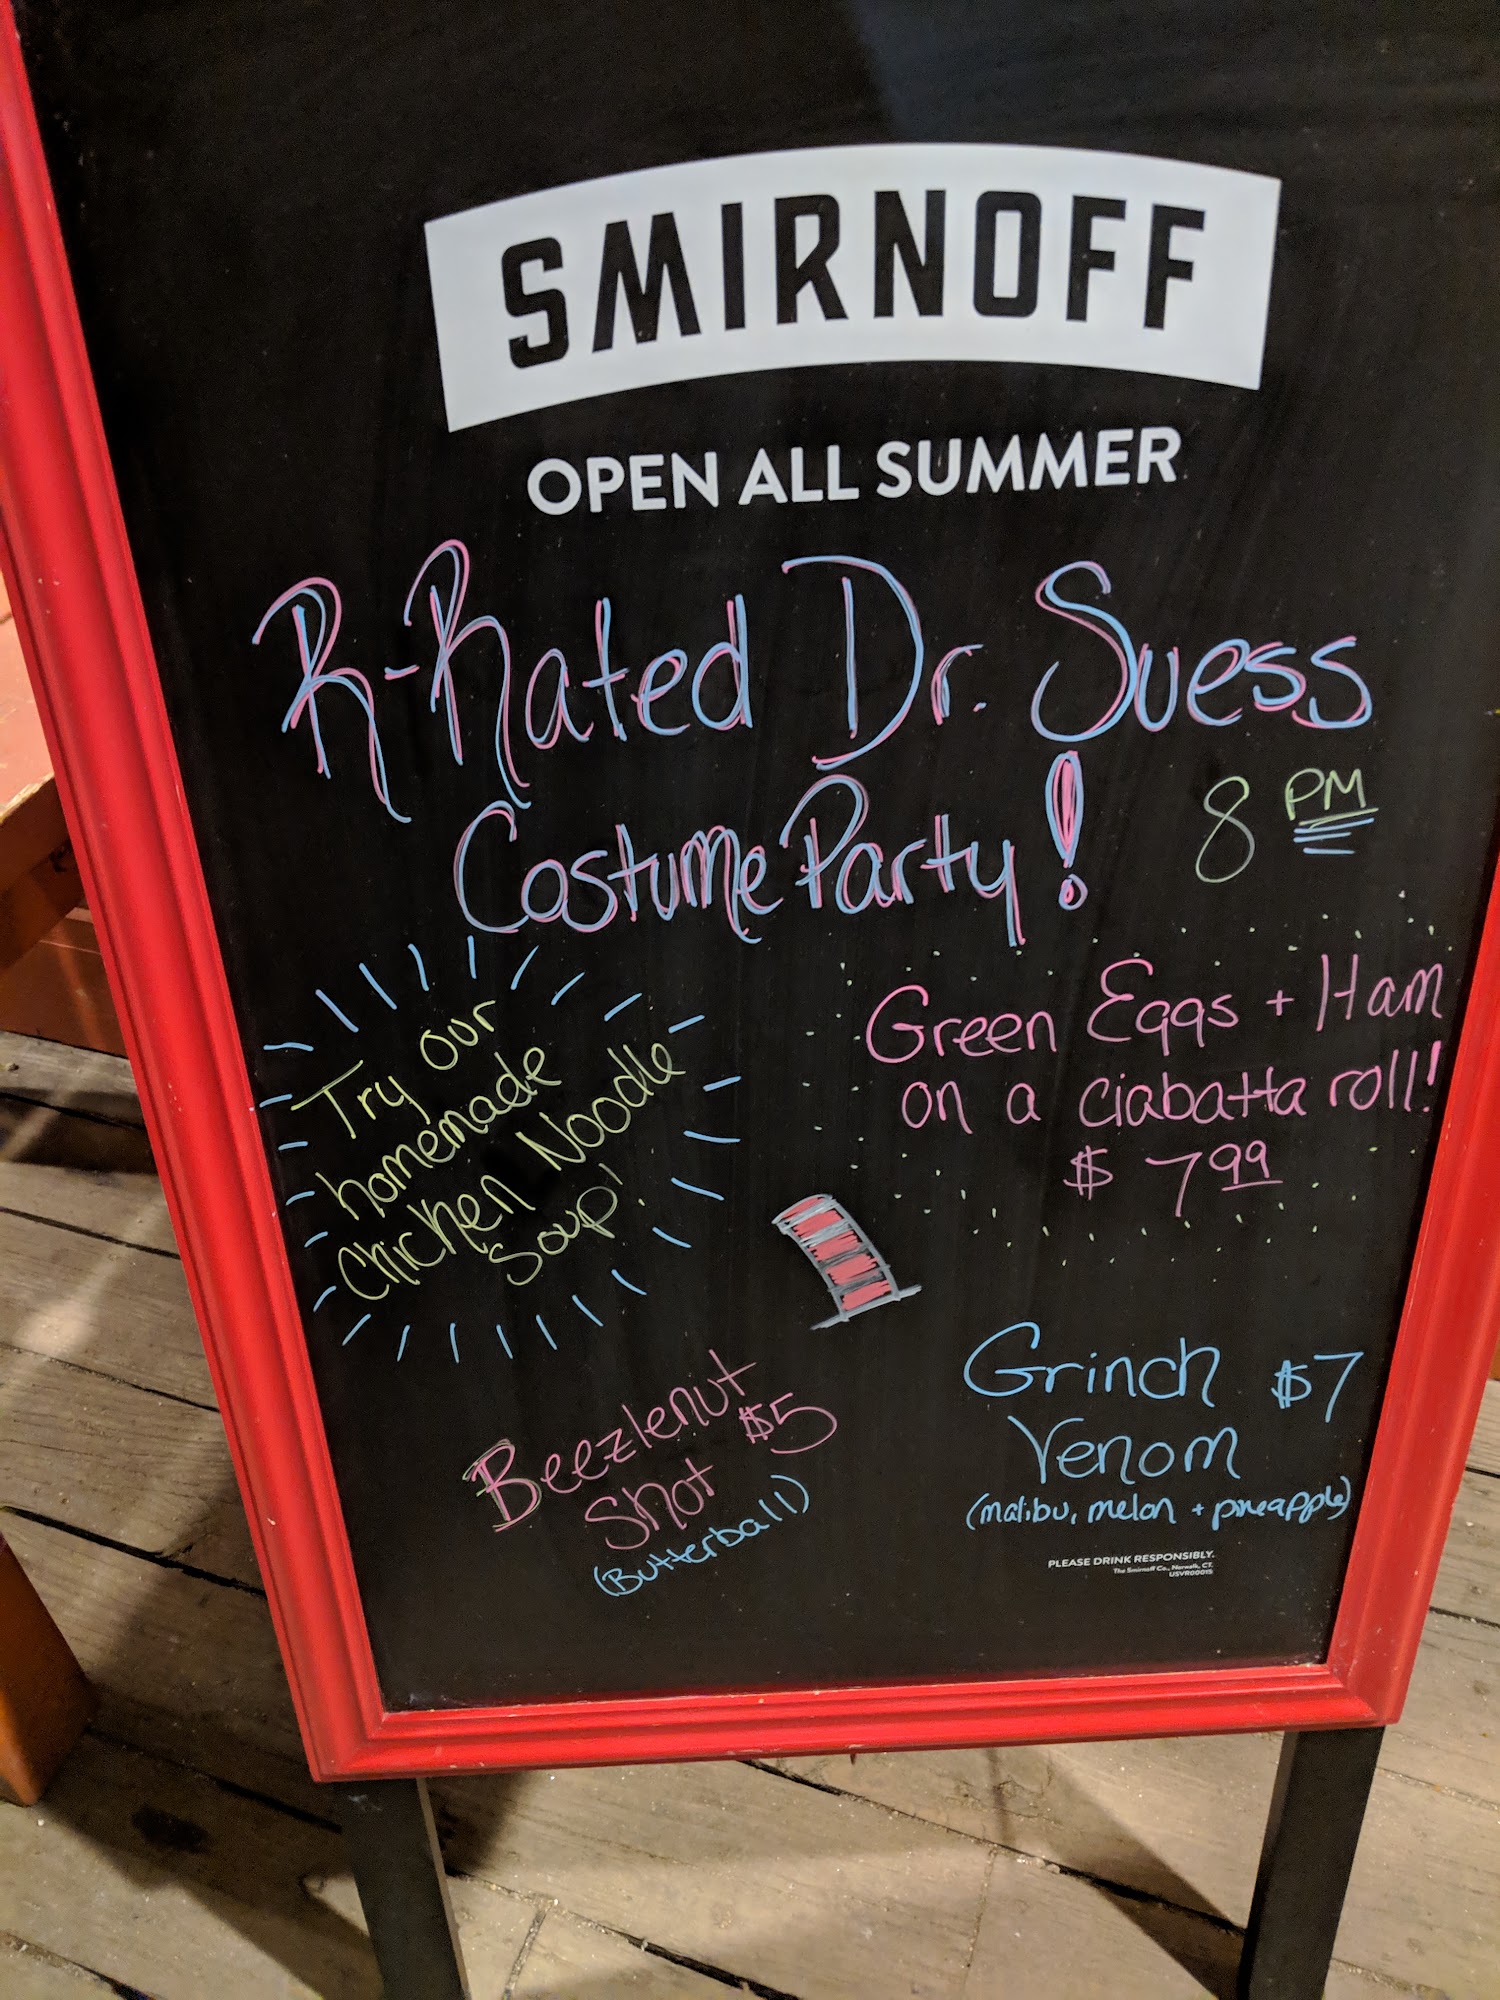 SMIRNOFF
OPEN ALL SUMMER
R-Rated Dr. Suess
Costume Party!
8 PM
Try our
homemade
Chicken Noodle
Soup!
Green Eggs + Ham
on a ciabatta roll!
$ 7 99
Beezlenut
Shot $5
(Butterball)
Grinch $7
Venom
(malibu, melon + pineapple)
PLEASE DRINK RESPONSIBLY.
The Smirnoff Co., Norwalk, CT.
USVR00015